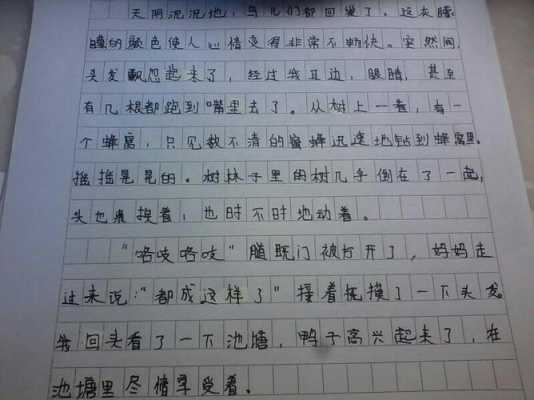 天阴沉沉地，鸟儿们都回巢了。这灰朦
朦的颜色使人心情变得非常不畅快。突然间，
头发飘忽起来了，经过我耳边，眼睛，甚至
有几根都跑到嘴里去了。从树上一看，有一
个蜂窝，只见数不清的蜜蜂迅速地钻到蜂窝里。
摇摇晃晃的。树林子里的树几乎倒在了一起，
头也来挨着，也时不时地动着。
"咯吱咯吱"随既门被打开了，妈妈走
过来说："都成这样了"接着抚摸了一下头发。
我回头看了一下池塘，鸭子高兴起来了，在
池塘里尽情享受着。